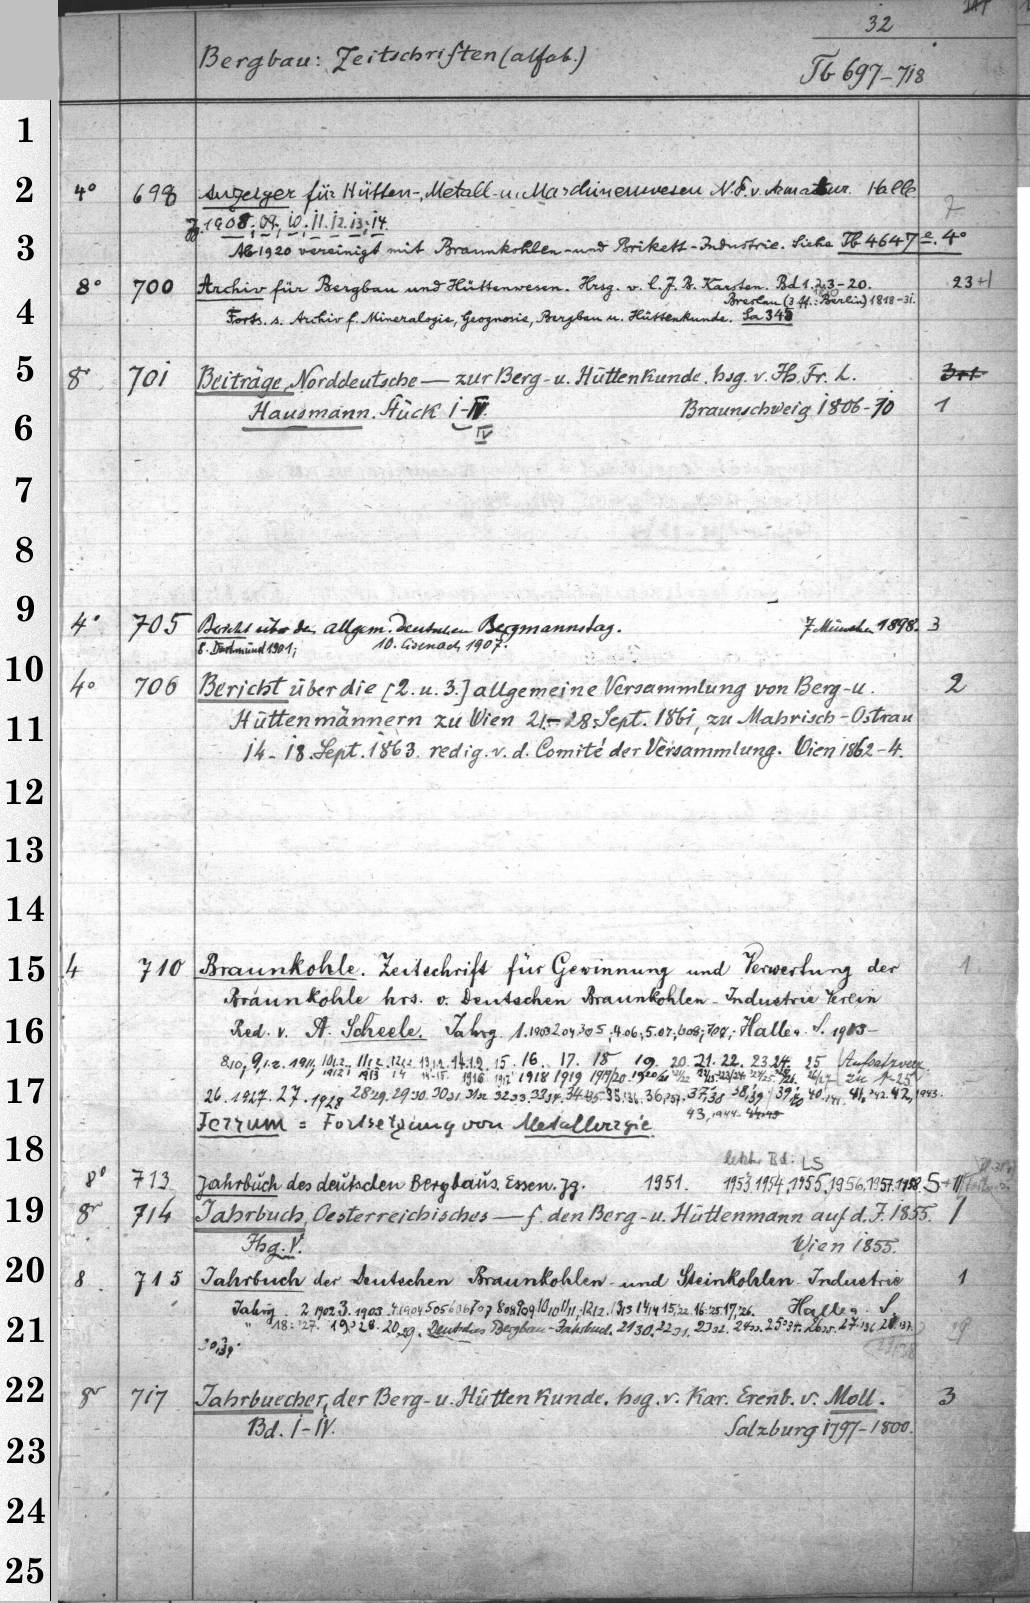 32
Bergbau: Zeitschriften (alfab.)
Tb 697-718
1
2 4° 698 Anzeiger für Hütten-, Metall- u. Maschinenwesen N.F. v. Halle
Jg. 1908. 09. 10. 11. 12. 13. 14. 7
3 Ab 1920 vereinigt mit Braunkohlen- und Brikett-Industrie. Siehe Tb 4647 e. 4°
8° 700 Archiv für Bergbau und Hüttenwesen. Hrsg. v. C. J. B. Karsten. Bd 1. 2. 3-20. 23+1
Breslau (3 ff.: Berlin) 1818-31.
4 Forts. s. Archiv f. Mineralogie, Geognosie, Bergbau u. Hüttenkunde. Sa 345
5 8r 701 Beiträge, Norddeutsche — zur Berg- u. Hüttenkunde. hsg. v. Jh. Fr. L.
6 Hausmann. Stück I-IV. Braunschweig 1806-10 1
IV
7
8
9 4° 705 Bericht über den allgem. Deutschen Bergmannstag. 7. München 1898. 3
8. Dortmund 1901; 10. Eisenach 1907.
10 4° 706 Bericht über die [2. u. 3.] allgemeine Versammlung von Berg- u. 2
11 Hüttenmännern zu Wien 21-28. Sept. 1861, zu Mahrisch-Ostrau
14-18. Sept. 1863. redig. v. d. Comité der Versammlung. Wien 1862-4.
12
13
14
15 4 710 Braunkohle. Zeitschrift für Gewinnung und Verwertung der 1
Braunkohle hrs. v. Deutschen Braunkohlen-Industrie Verein
16 Red. v. A. Scheele. Jahrg. 1. 1903 2 04 3 05, 4. 06, 5. 07, 6 08; 7 09; Halle a. S. 1903-
15. 16. 17. 18 19. 20. 21. 22. 23 24. 25
1918 1919 1919/20
17 26. 1927. 27. 1928 28 29. 29 30. 30 31 31 32 32 33. 33 34.
43, 1944.
Ferrum = Fortsetzung von Metallurgie.
18 LS
8° 713 Jahrbuch des deutschen Bergbaus. Essen. Jg. 1951. 1953. 1954, 1955, 1956, 1957. 1958. 5
19 8r 714 Jahrbuch, Oesterreichisches — f. den Berg- u. Hüttenmann auf d. J. 1855. 1
Jhg. V. Wien 1855.
20 8 715 Jahrbuch der Deutschen Braunkohlen- und Steinkohlen-Industrie 1
Jahrg. 2. 1902 3. 1903. 4. 1904 5 05 6 06 7 07 8 08 9 09 10 10 11 11, 12 12. 13 13 14 14 15, 22. 16: 25. 17, 26. Halle a. S.
21 18: 27. 19: 28. 20 29. Deutsches Bergbau-Jahrbuch. 21 30. 22 31. 23 32. 24 33. 25 34. 26 35. 27 36
22 8r 717 Jahrbuecher, der Berg- u. Hüttenkunde. hsg. v. Kar. Erenb. v. Moll. 3
Bd. I-IV. Salzburg 1797-1800.
23
24
25